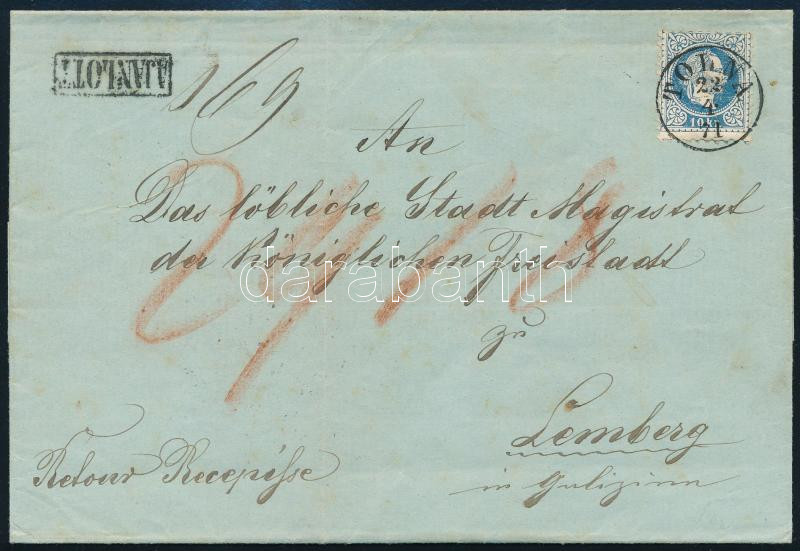 AJÁNLOTT
169
TOLNA
22
4
71
10 kr
An
Das löbliche Stadt Magistrat
der Königlichen Freistadt
zu
Lemberg
in Galizien
Retour Recepisse
darabanth